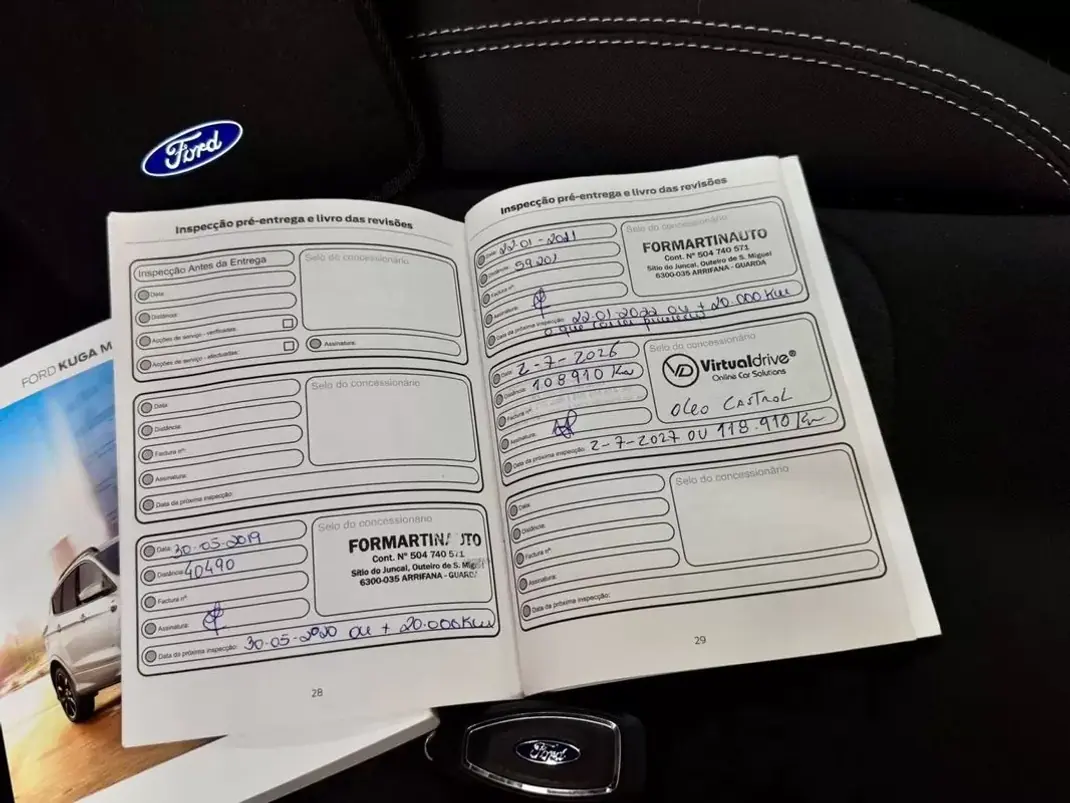 Ford
FORD KUGA M
Inspecção pré-entrega e livro das revisões
Inspecção Antes da Entrega
Data:
Distância:
Acções de serviço - verificadas:
Acções de serviço - efectuadas:
Selo do concessionário
Assinatura:
Data:
Distância:
Factura nº:
Assinatura:
Data da próxima inspecção:
Selo do concessionário
Data: 30-05-2019
Distância: 40490
Factura nº:
Assinatura:
Data da próxima inspecção: 30-05-2020 ou + 20.000Km
Selo do concessionário
FORMARTINAUTO
Cont. Nº 504 740 571
Sítio do Juncal, Outeiro de S. Miguel
6300-035 ARRIFANA - GUARDA
28
Inspecção pré-entrega e livro das revisões
Data: 22-01-2021
Distância: 59201
Factura nº:
Assinatura:
Data da próxima inspecção: 22-01-2022 ou + 20.000Km
Selo do concessionário
FORMARTINAUTO
Cont. Nº 504 740 571
Sítio do Juncal, Outeiro de S. Miguel
6300-035 ARRIFANA - GUARDA
Data: 2-7-2026
Distância: 108910 Km
Factura nº:
Assinatura:
Data da próxima inspecção: 2-7-2027 OU 118.910 Km
Selo do concessionário
VD Virtualdrive®
Online Car Solutions
OLEO CASTROL
Data:
Distância:
Factura nº:
Assinatura:
Data da próxima inspecção:
Selo do concessionário
29
Ford